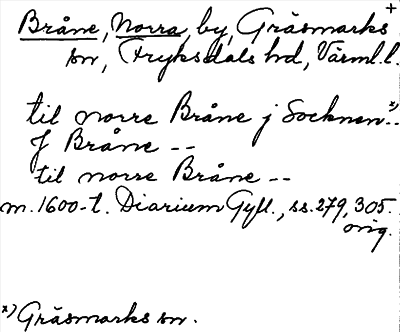 +
Bråne, Norra, by, Gräsmarks
sn, Fryksdals hd, Värml.l.
til norre Bråne j Socknen x)..
J Bråne --
til norre Bråne --
m. 1600-t. Diarium Gyll., ss. 279, 305.
orig.
x) Gräsmarks sn.